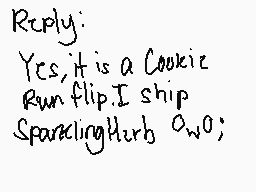 Reply:
Yes, it is a Cookie
Run flip. I ship
SparklingHerb OwO;